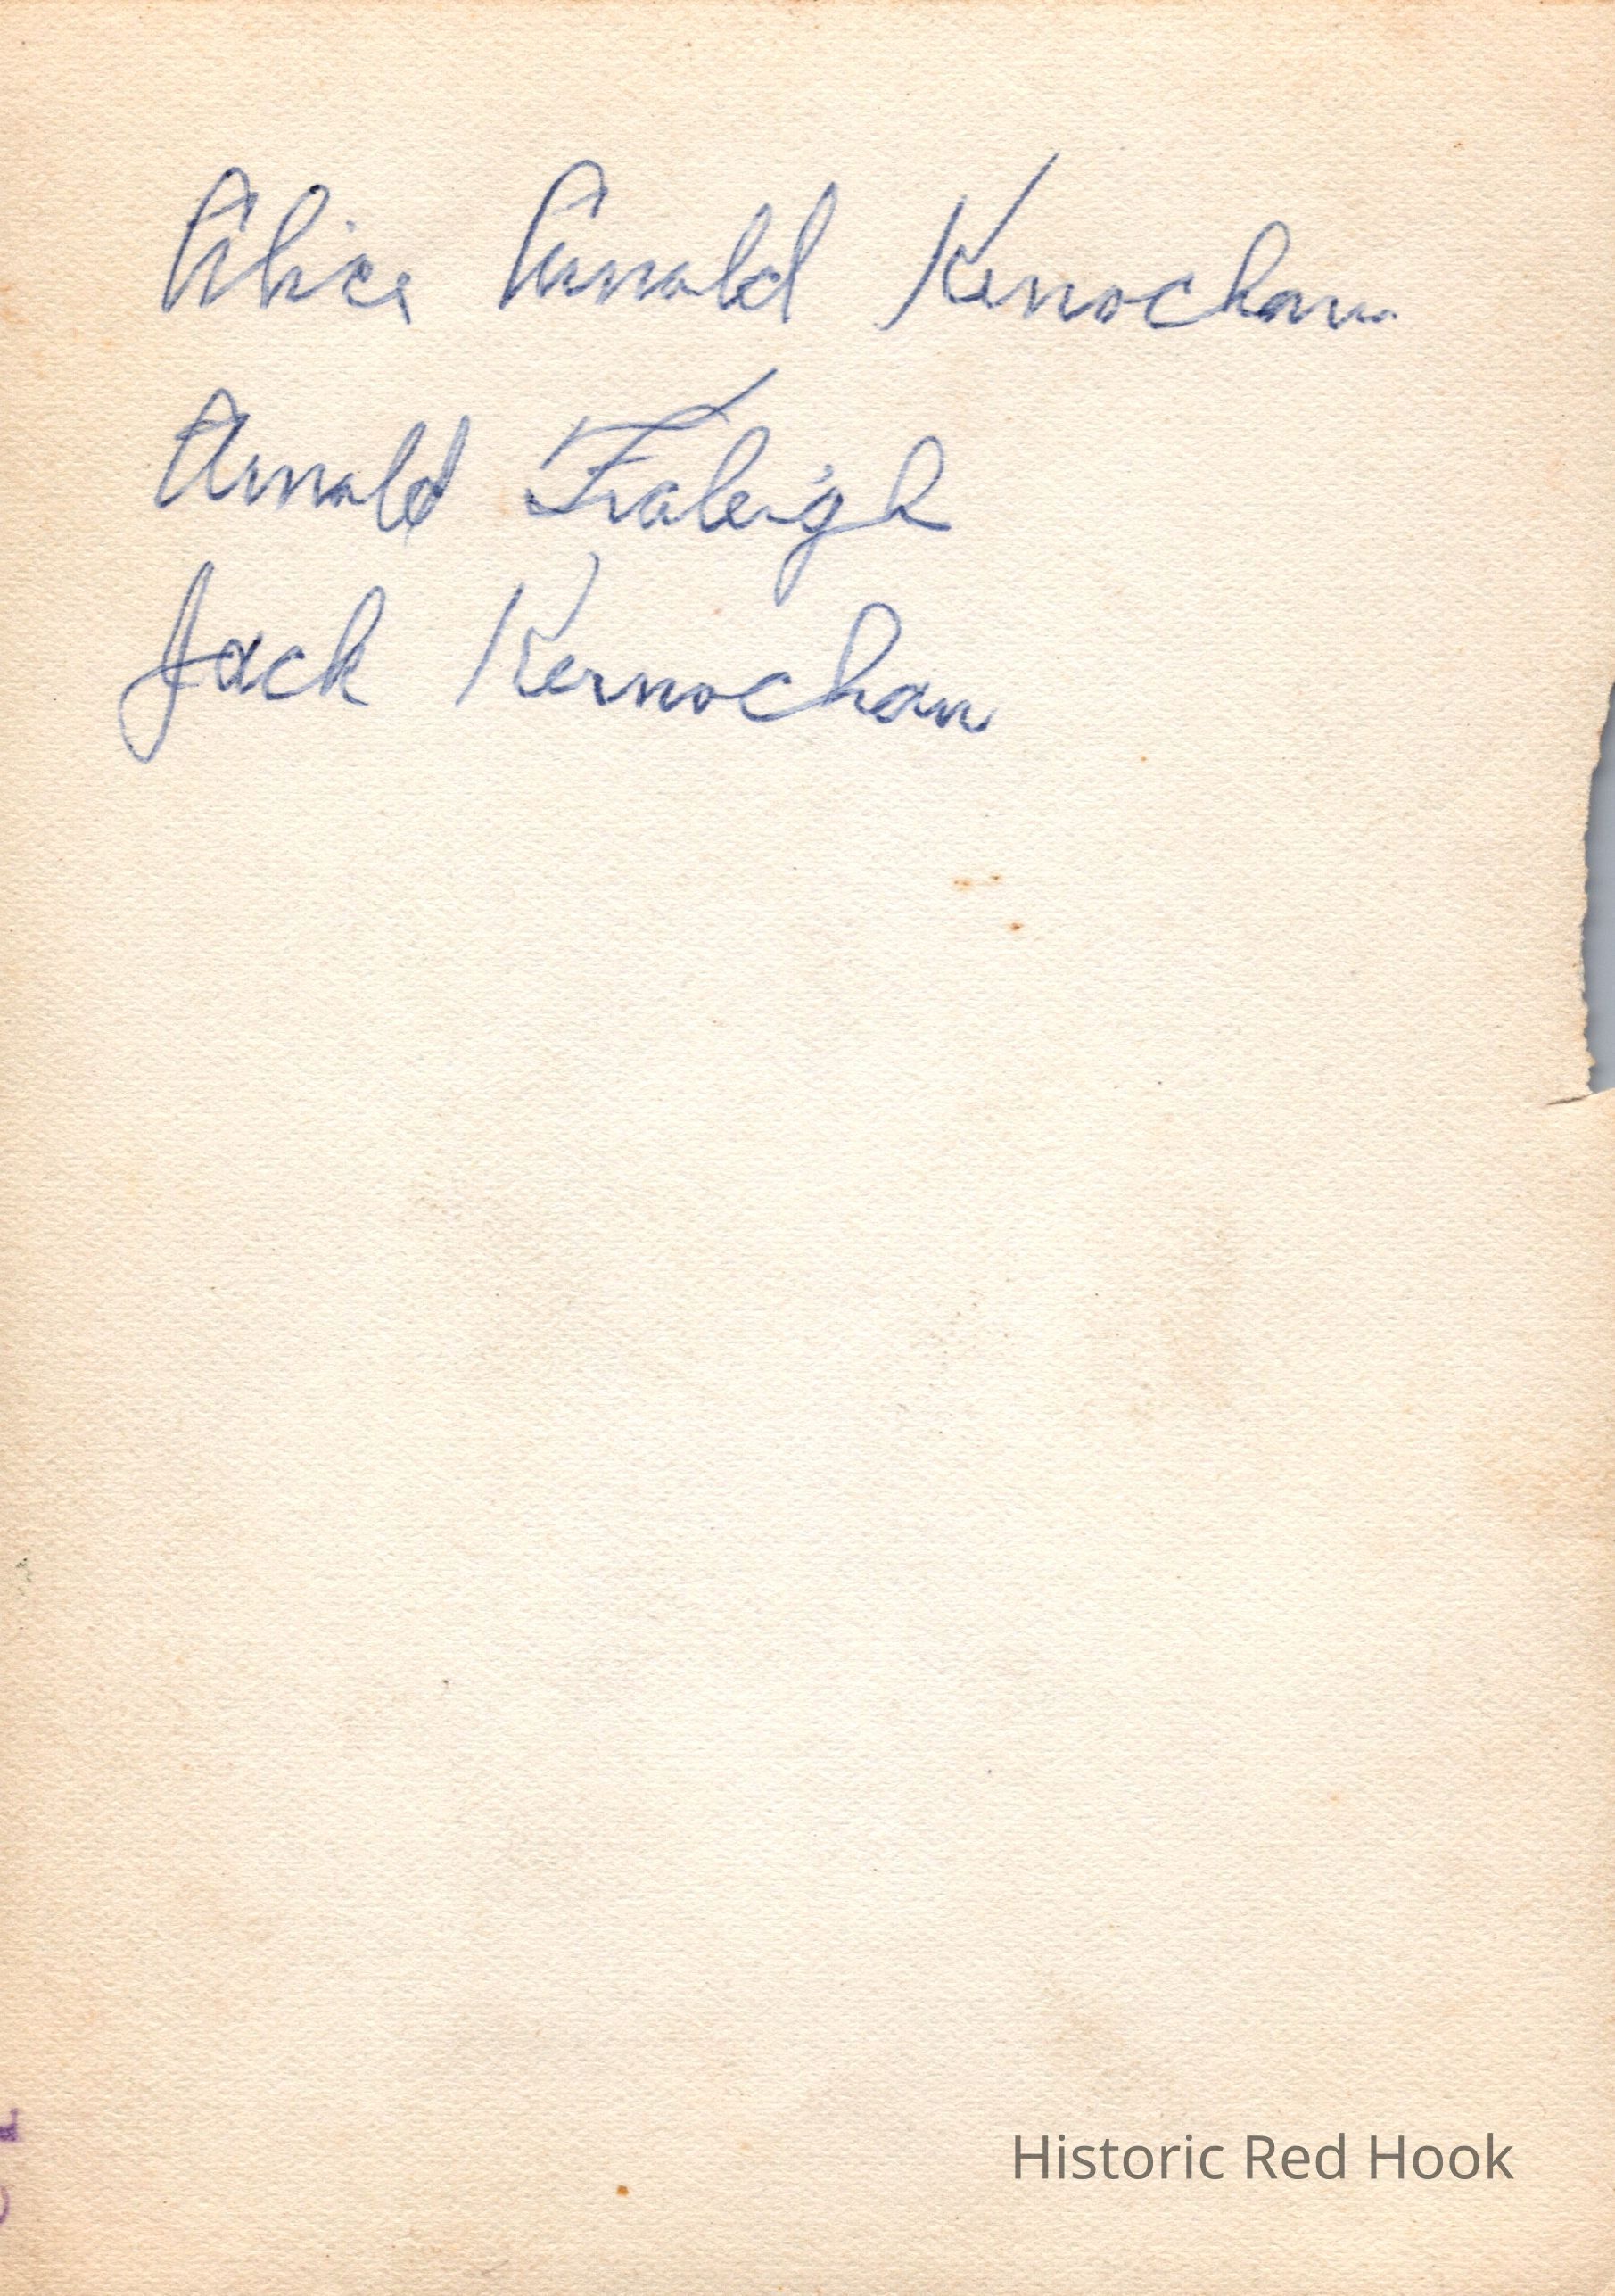 Alice Arnold Kernochan
Arnold Fraleigh
Jack Kernochan
Historic Red Hook